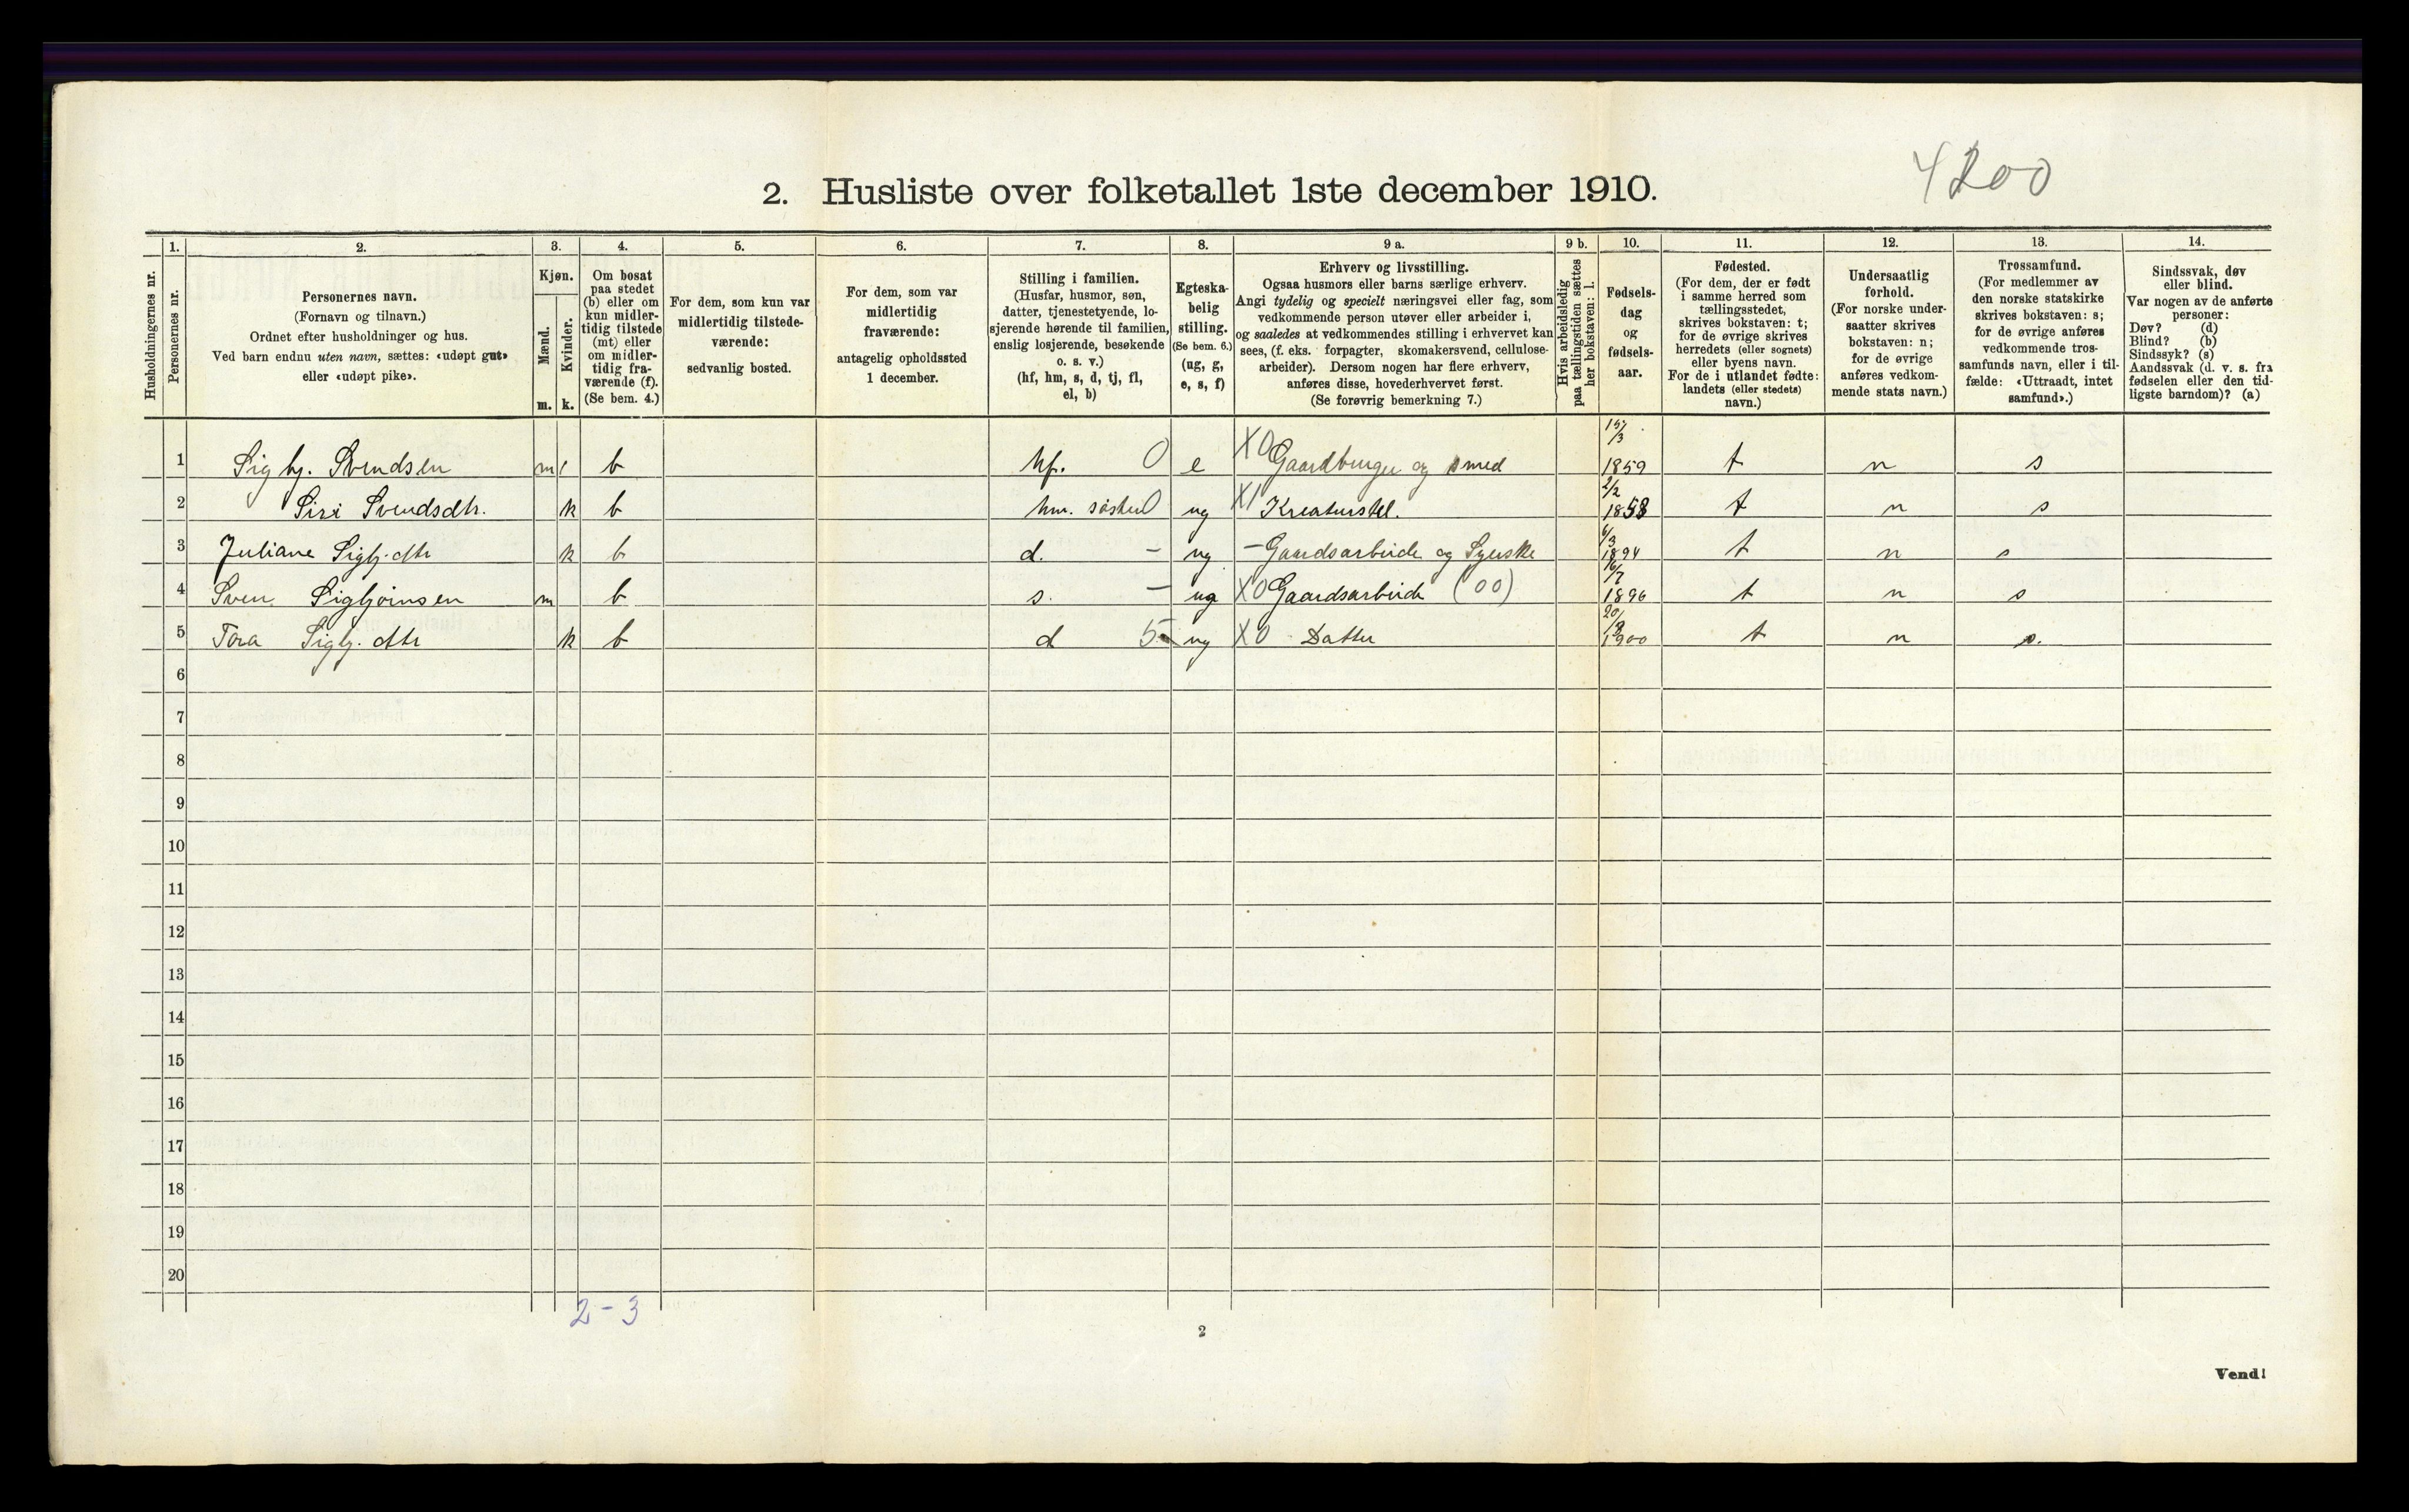 4200
2. Husliste over folketallet 1ste december 1910.
Husholdningernes nr.
1. Personernes nr.
2. Personernes navn. (Fornavn og tilnavn.) Ordnet efter husholdninger og hus. Ved barn endnu uten navn, sættes: «udøpt gut» eller «udøpt pike».
3. Kjøn. Mænd. m. Kvinder. k.
4. Om bosat paa stedet (b) eller om kun midlertidig tilstede (mt) eller om midlertidig fraværende (f). (Se bem. 4.)
5. For dem, som kun var midlertidig tilstedeværende: sedvanlig bosted.
6. For dem, som var midlertidig fraværende: antagelig opholdssted 1 december.
7. Stilling i familien. (Husfar, husmor, søn, datter, tjenestetyende, losjerende hørende til familien, enslig losjerende, besøkende o. s. v.) (hf, hm, s, d, tj, fl, el, b)
8. Egteskabelig stilling. (Se bem. 6.) (ug, g, e, s, f)
9 a. Erhverv og livsstilling. Ogsaa husmors eller barns særlige erhverv. Angi tydelig og specielt næringsvei eller fag, som vedkommende person utøver eller arbeider i, og saaledes at vedkommendes stilling i erhvervet kan sees, (f. eks. forpagter, skomakersvend, cellulosearbeider). Dersom nogen har flere erhverv, anføres disse, hovederhvervet først. (Se forøvrig bemerkning 7.)
9 b. Hvis arbeidsledig paa tællingstiden sættes her bokstaven: l.
10. Fødselsdag og fødselsaar.
11. Fødested. (For dem, der er født i samme herred som tællingsstedet, skrives bokstaven: t; for de øvrige skrives herredets (eller sognets) eller byens navn. For de i utlandet fødte: landets (eller stedets) navn.)
12. Undersaatlig forhold. (For norske undersaatter skrives bokstaven: n; for de øvrige anføres vedkommende stats navn.)
13. Trossamfund. (For medlemmer av den norske statskirke skrives bokstaven: s; for de øvrige anføres vedkommende trossamfunds navn, eller i tilfælde: «Uttraadt, intet samfund».)
14. Sindssvak, døv eller blind. Var nogen av de anførte personer: Døv? (d) Blind? (b) Sindssyk? (s) Aandssvak (d. v. s. fra fødselen eller den tidligste barndom)? (a)
1 Sigbj. Svendsen m b hf. 0 e X0 Gaardbruger og smed 15/3 1859 t n s
2 Siri Svendsdtr. k b hm. søster 0 ug X1 Kreaturstel. 2/2 1858 t n s
3 Juliane Sigbj.dtr k b d. - ug - Gaardsarbeide og Syerske 6/3 1894 t n s
4 Sven Sigbjørnsen m b s. - ug X0 Gaardsarbeide (00) 16/7 1896 t n s
5 Tora Sigbj.dtr k b d 5 ug X0 Datter 20/8 1900 t n s.
6
7
8
9
10
11
12
13
14
15
16
17
18
19
20
2-3
2
Vend!